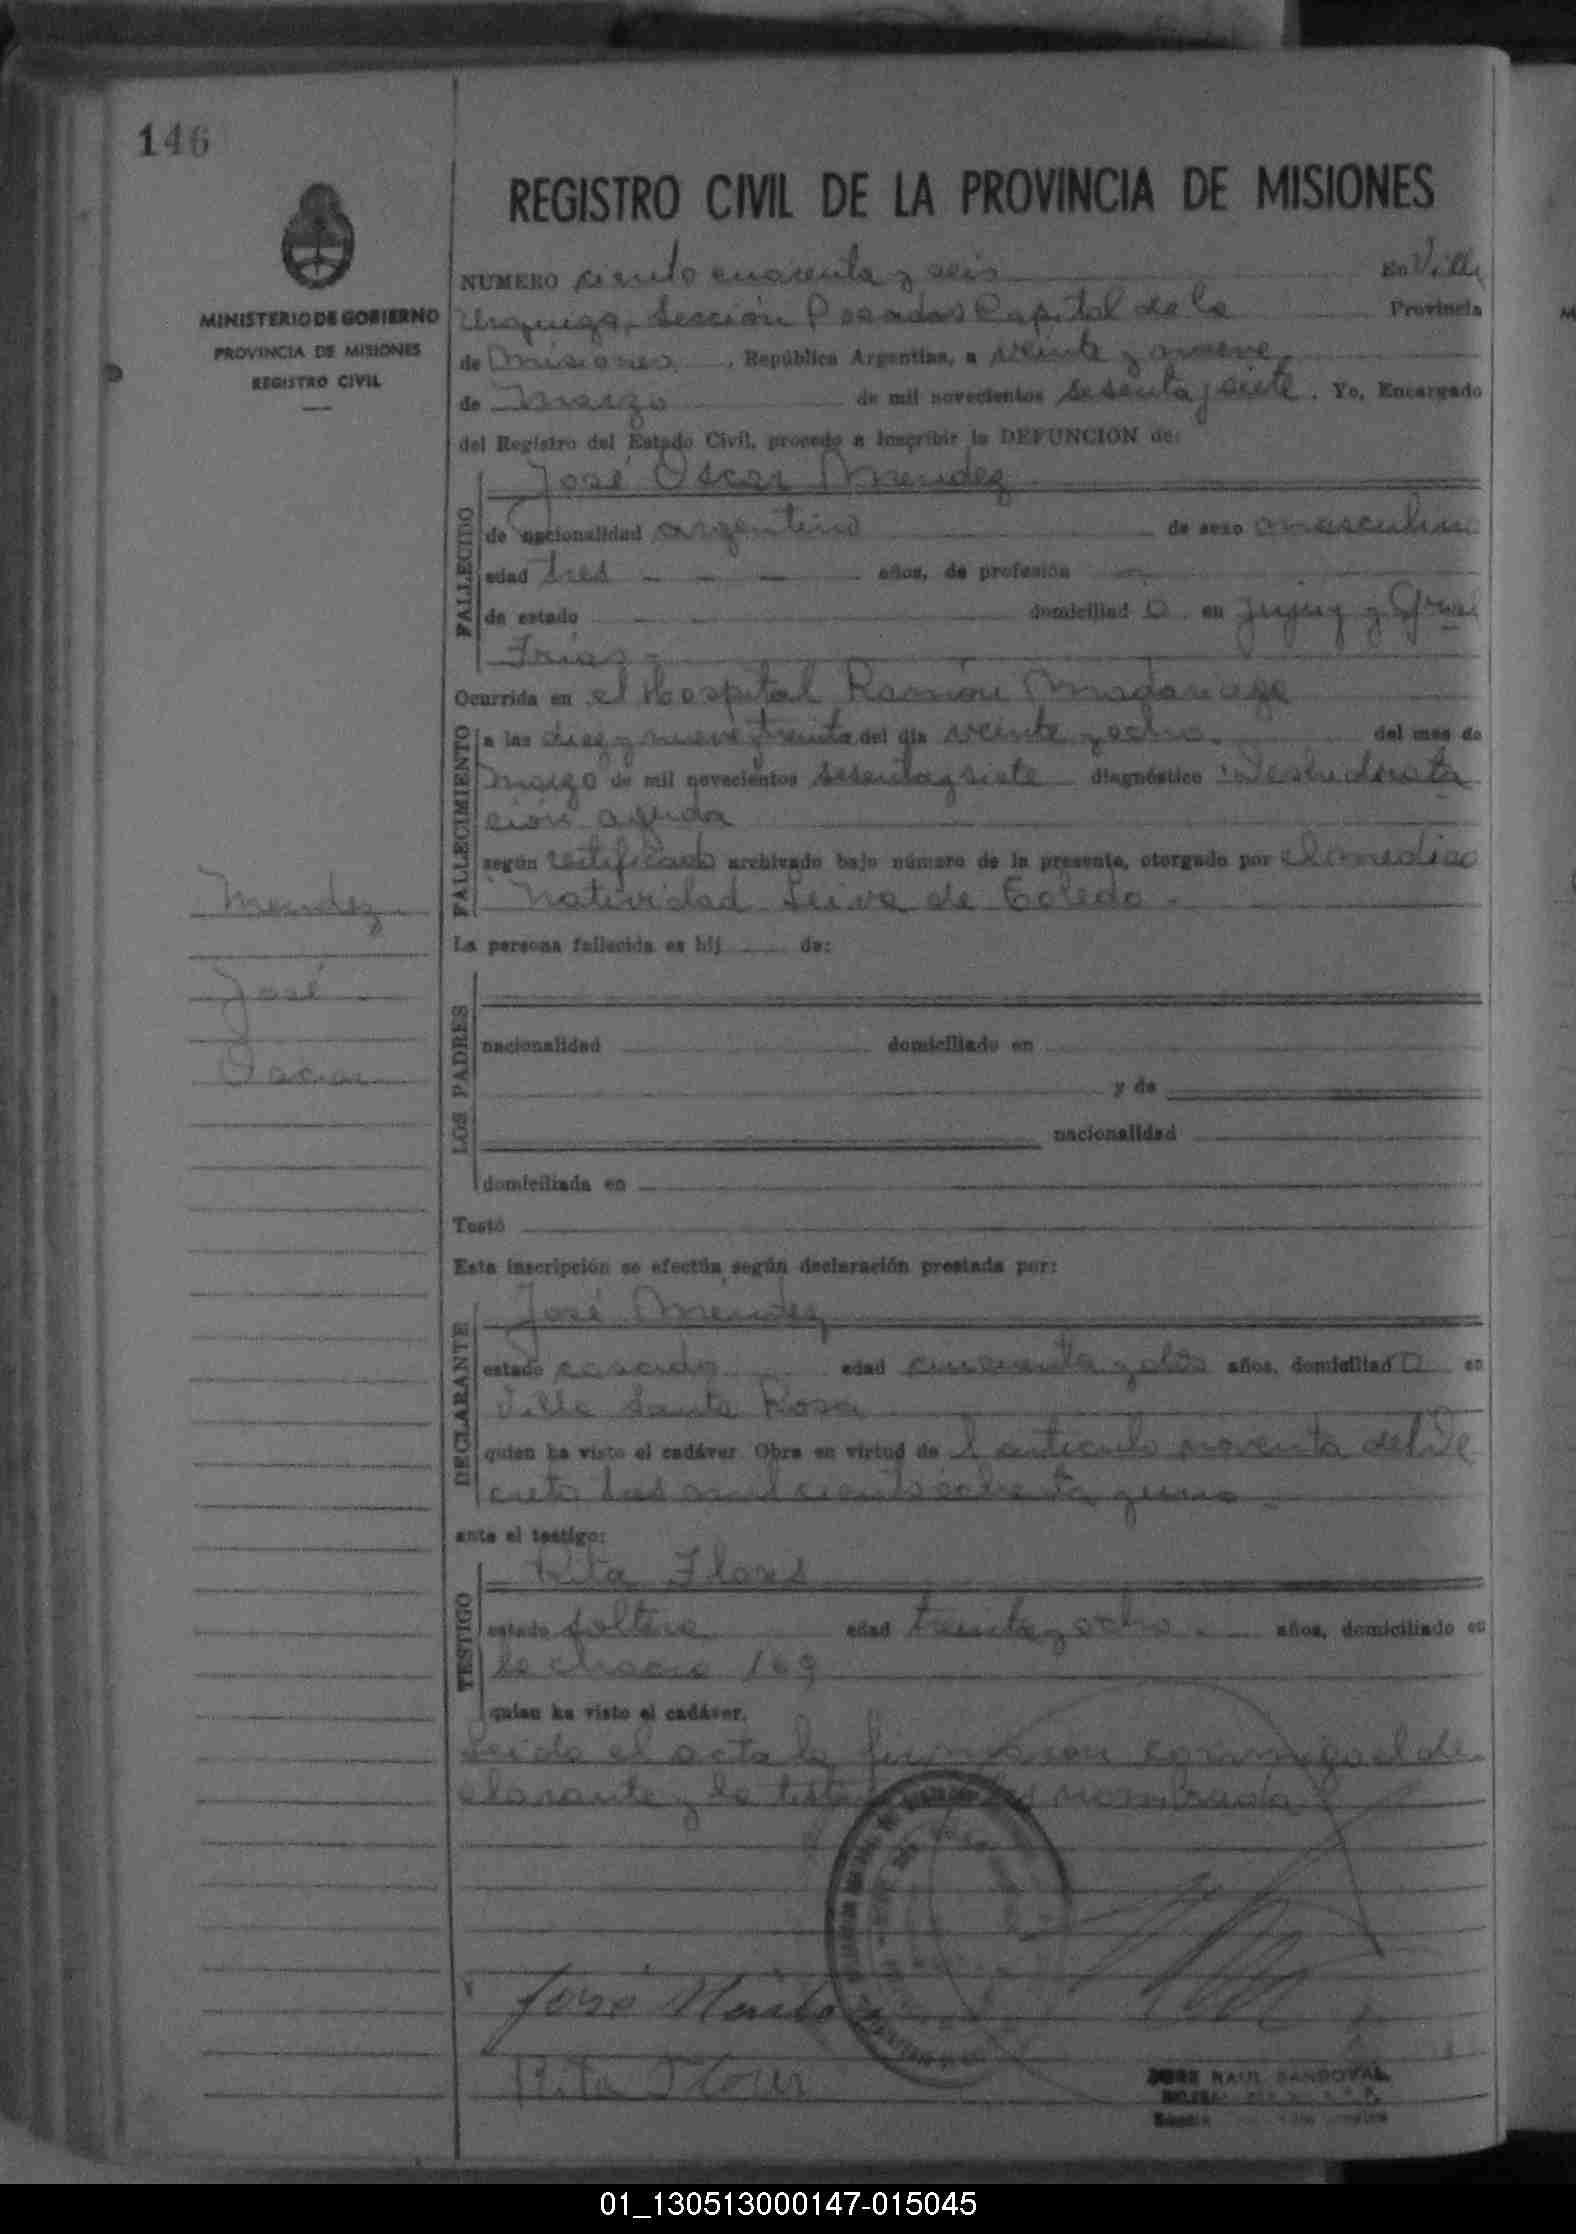 146
REGISTRO CIVIL DE LA PROVINCIA DE MISIONES
MINISTERIO DE GOBIERNO
PROVINCIA DE MISIONES
REGISTRO CIVIL
NUMERO ciento cuarenta y seis En Villa
Urquiza, Sección Posadas Capital de la Provincia
de Misiones, República Argentina, a veinte y nueve
de Marzo de mil novecientos sesenta y siete. Yo, Encargado
del Registro del Estado Civil, procedo a inscribir la DEFUNCION de:
FALLECIDO
José Oscar Mendez
de nacionalidad argentino de sexo masculino
edad tres años, de profesión
de estado domiciliad o en Jujuy y Gral
Frías
Ocurrida en el Hospital Ramón Madariaga
FALLECIMIENTO
a las diez y nueve y treinta del día veinte y ocho del mes de
Marzo de mil novecientos sesenta y siete diagnóstico Deshidrata
ción aguda
según certificado archivado bajo número de la presente, otorgado por el medico
Natividad Leiva de Toledo
Mendez
José
Oscar
La persona fallecida es hij de:
LOS PADRES
nacionalidad domiciliado en
y de
nacionalidad
domiciliada en
Testó
Esta inscripción se efectúa según declaración prestada por:
DECLARANTE
José Méndez
estado casado edad cincuenta y dos años, domiciliado en
Villa Santa Rosa
quien ha visto el cadáver. Obra en virtud de l articulo noventa del De
creto tres mil ciento ochenta y uno
ante el testigo:
TESTIGO
Rita Flores
estado soltera edad treinta y ocho años, domiciliado en
la chacra 169
quien ha visto el cadáver.
Leida el acta la firmaron conmigo el de
clarante y la nombrada
José
Rita Flores
JOSE RAUL SANDOVAL
01_130513000147-015045